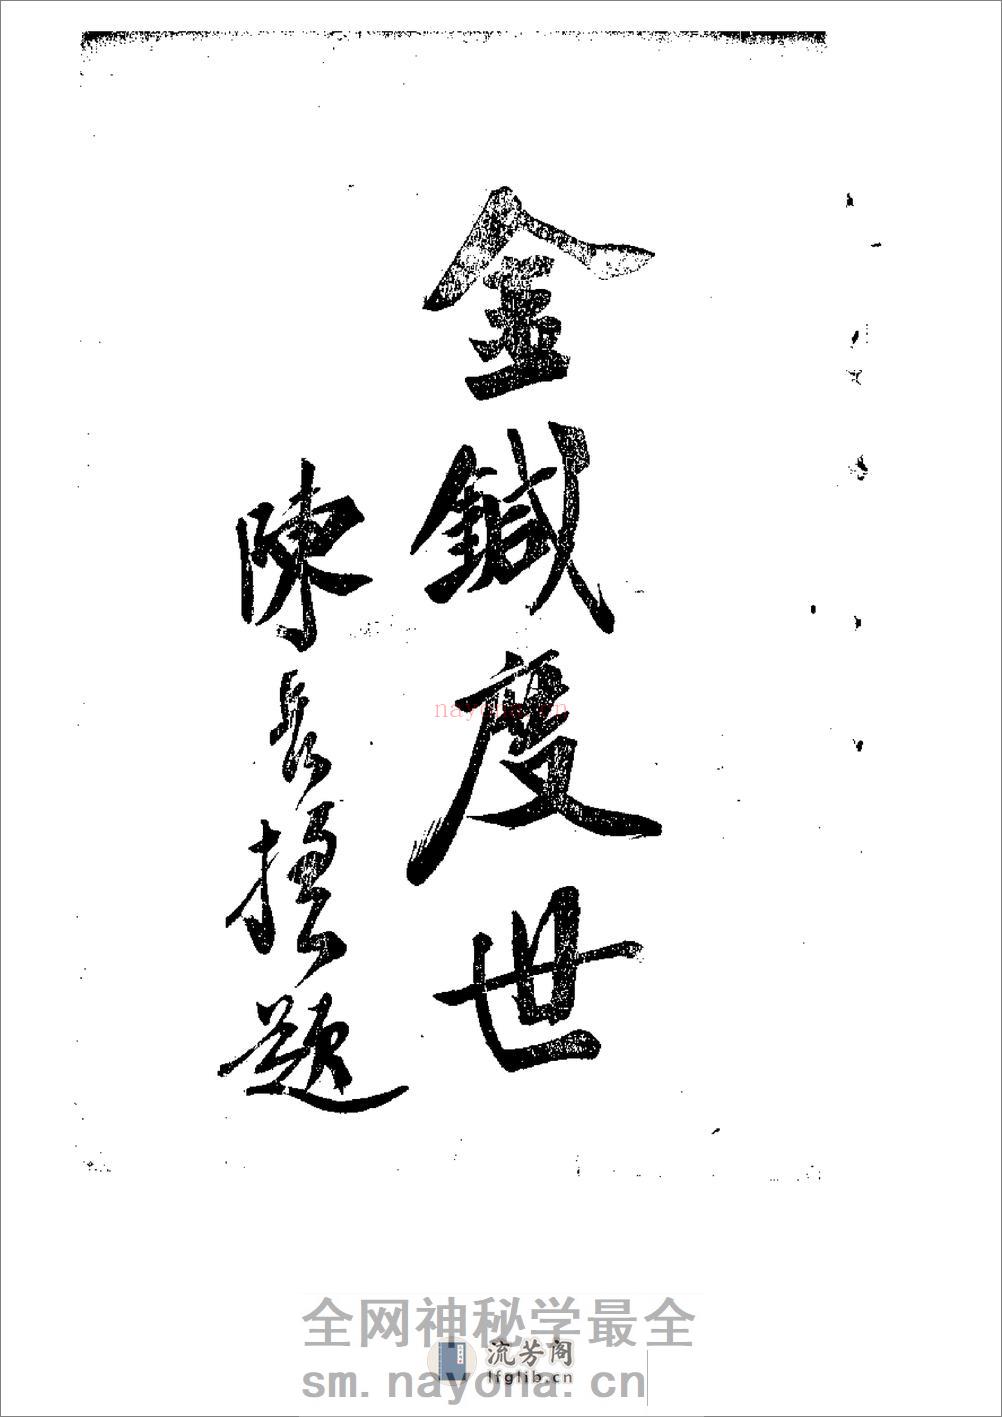 金鍼度世
陳長
題
nayona.cn
全网神秘学最全
流芳阁
lfglib.cn
sm.nayona.cn